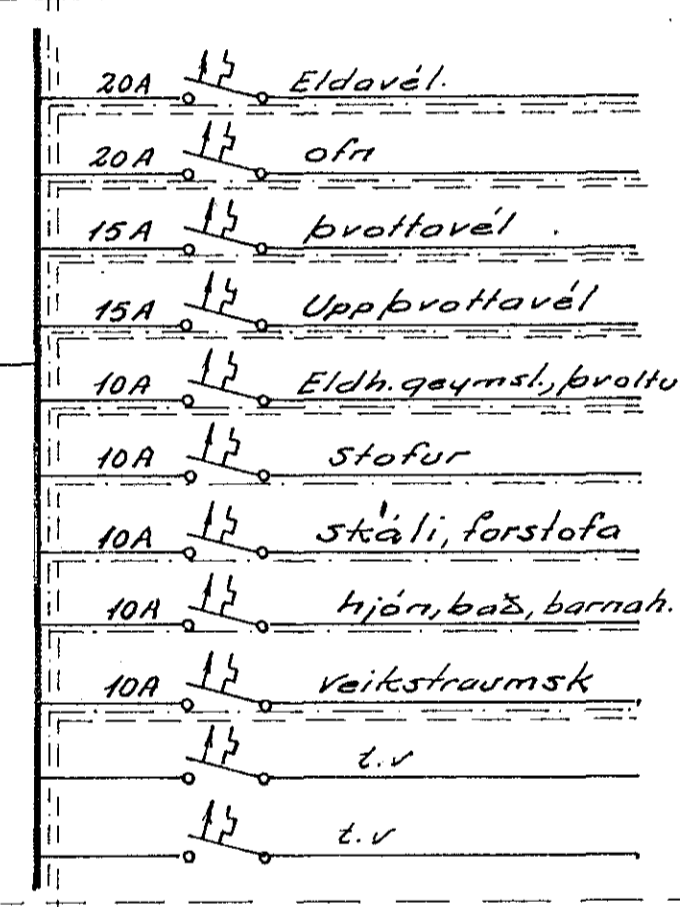 20A Eldavél.
20A ofn
15A þvottavél
15A Uppþvottavél
10A Eldh. geymsl., þvottu
10A stofur
10A skáli, forstofa
10A hjón, bað, barnah.
10A veikstraumsk
t.v
t.v